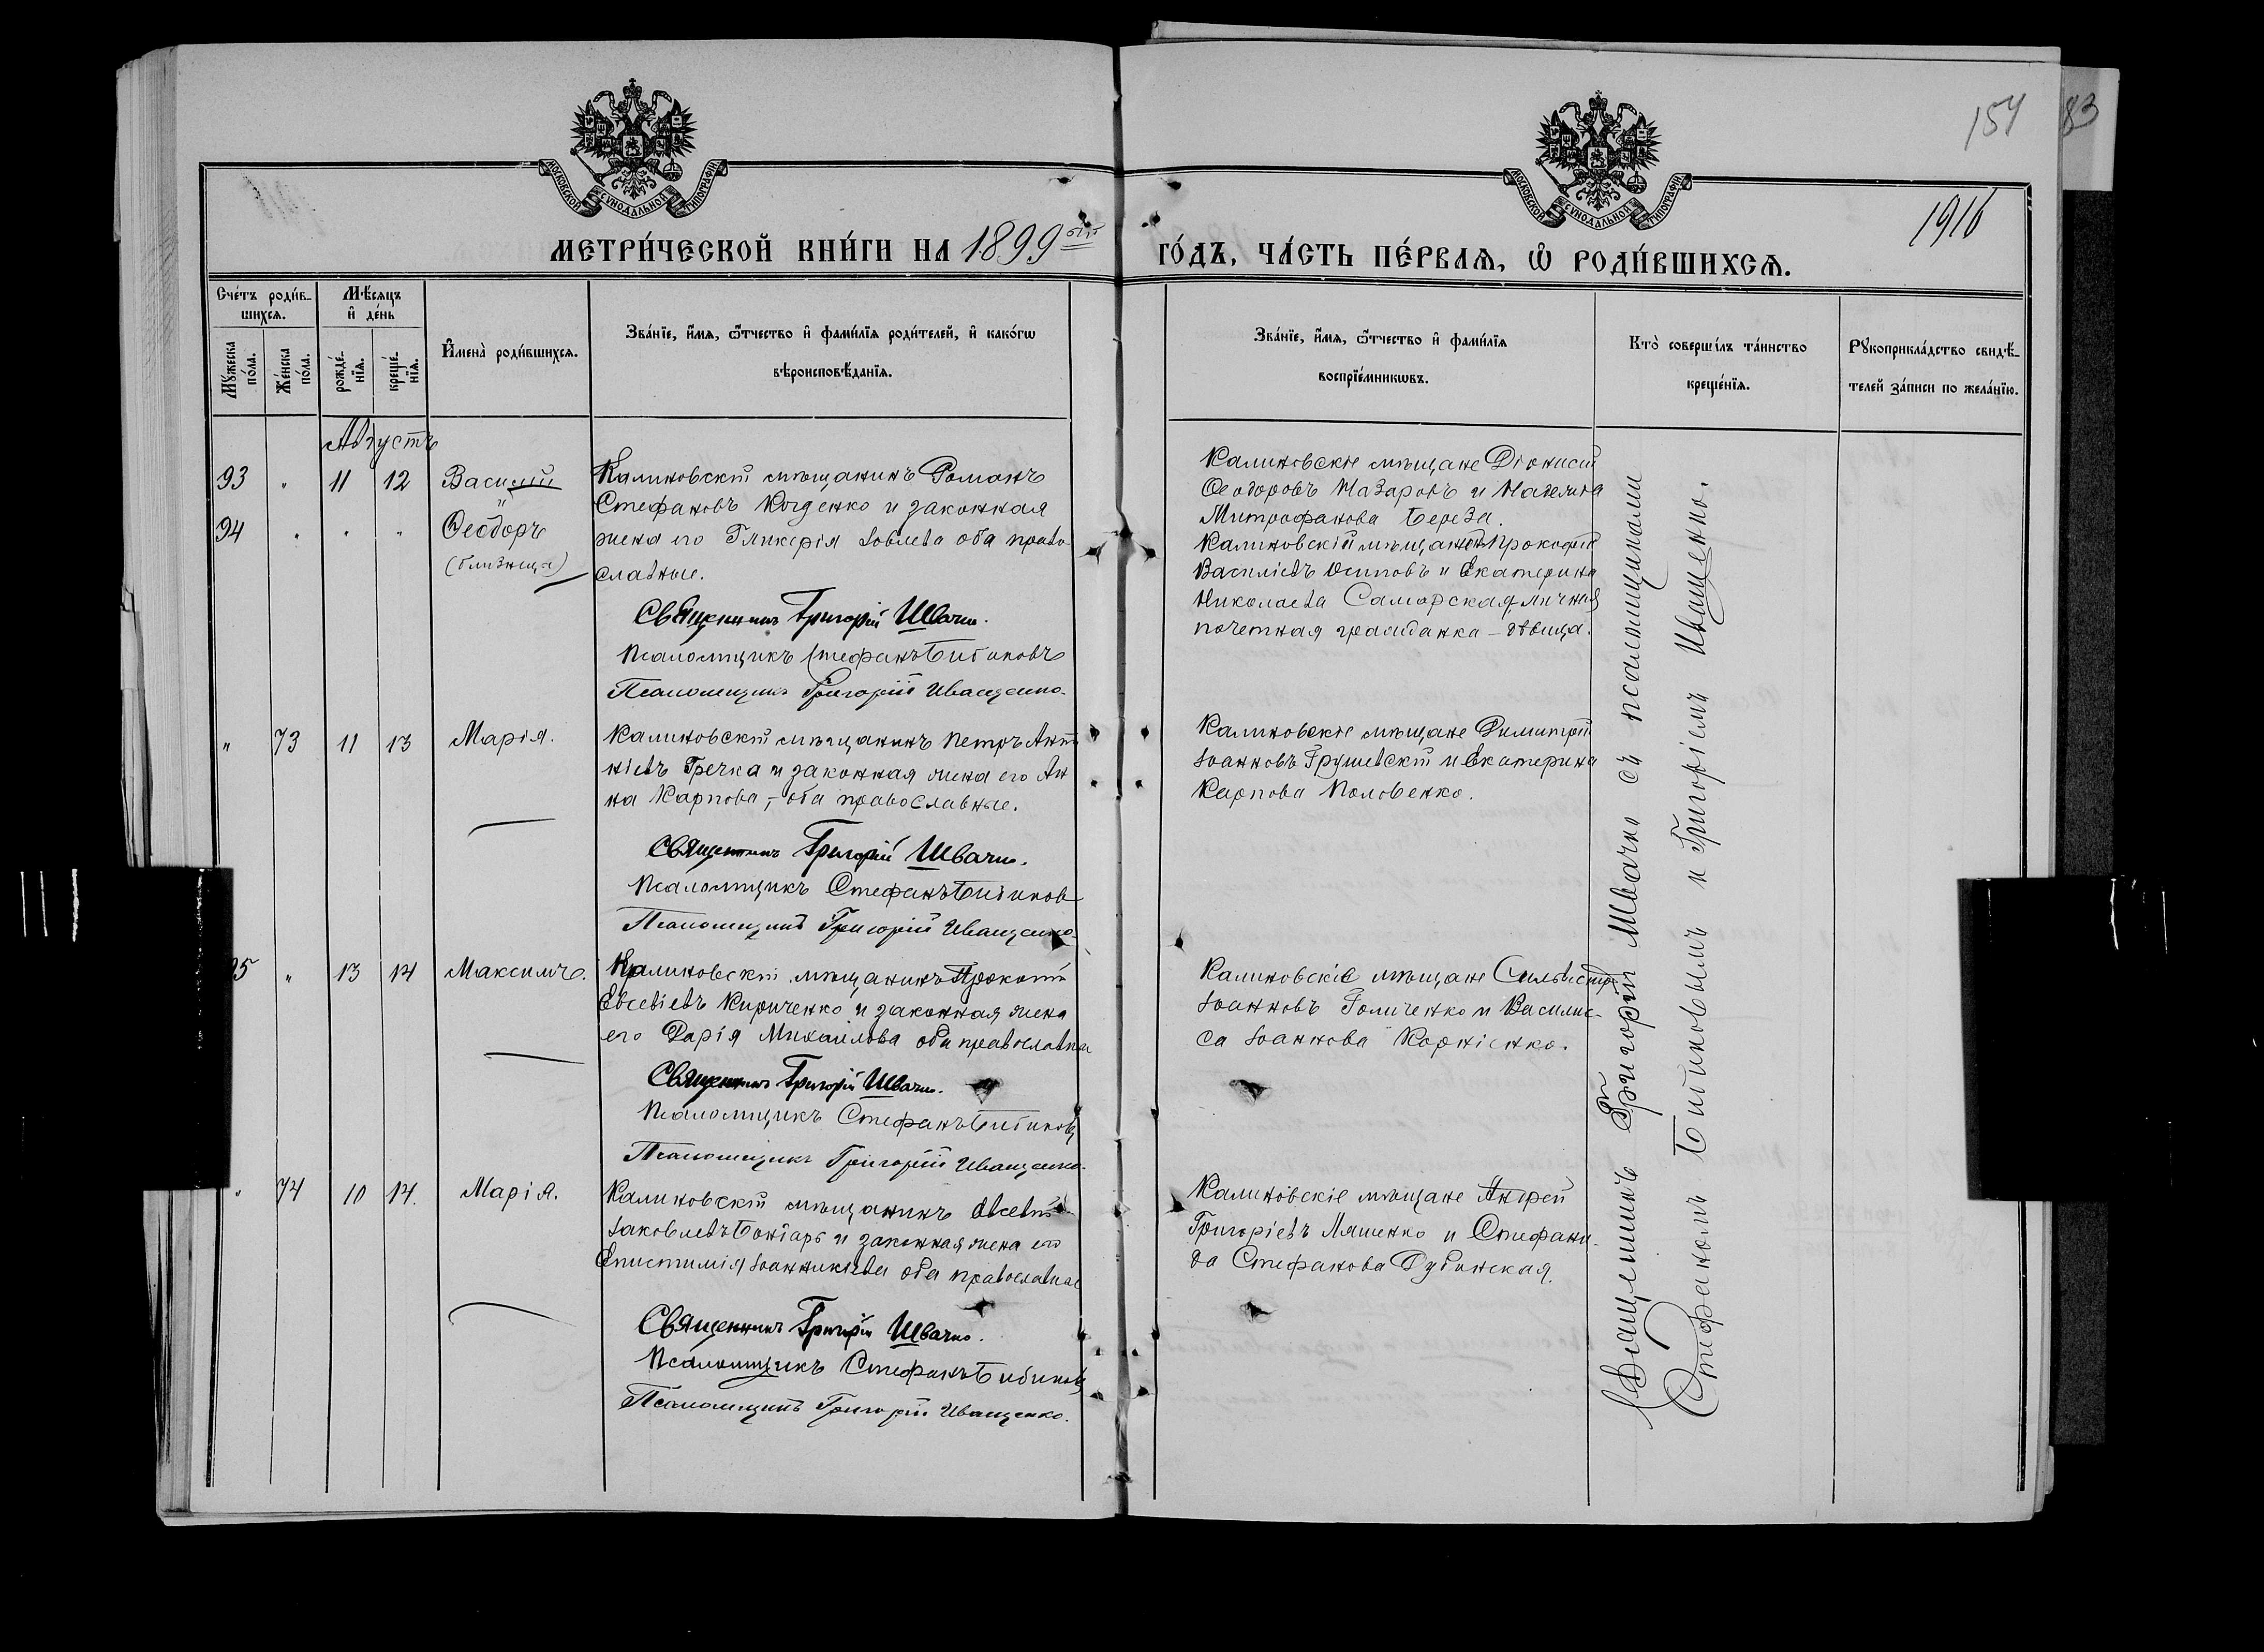 154 83
1916
МОСКОВСКОЙ СУНОДАЛЬНОЙ ТИПОГРАФІИ
МОСКОВСКОЙ СУНОДАЛЬНОЙ ТИПОГРАФІИ
МЕТРИ́ЧЕСКОЙ КНИ́ГИ НА 1899 ый
ГО́ДЪ, ЧА́СТЬ ПЕ́РВАЯ, Ѡ҆ РОДИ́ВШИХСЯ.
Сче́тъ роди́в-
шихся.
Мꙋ́жеска по́ла.
Же́нска по́ла.
Мѣ́сяцъ
и҆ де́нь
рожде́-
нїя.
креще́-
нїя.
И҆мена̀ роди́вшихся.
Зва́нїе, и҆́мя, ѻ҆́тчество и҆ фами́лїя роди́телей, и҆ како́гѡ
вѣроисповѣ́данїя.
Зва́нїе, и҆́мя, ѻ҆́тчество и҆ фами́лїя
воспрїе́мникѡвъ.
Кто̀ соверши́лъ та́инство
креще́нїя.
Рꙋкоприкла́дство свидѣ́-
телей за́писи по жела́нїю.
Августъ
93 " 11 12 Василій
94 " " " Ѳеодоръ
(близнецы)
Калиновскій мѣщанинъ Романъ
Стефановъ и законная
жена его Гликерія Іовлева оба право-
славные.
Священникъ Григорій Швачко.
Псаломщикъ Стефанъ Бибиковъ
Псаломщикъ Григорій Иващенко.
Калиновскіе мѣщане Діонисій
Ѳеодоровъ Назаровъ и
Митрофанова Береза.
Калиновскій мѣщанинъ Прокофій
Васильевъ Осиповъ и Екатерина
Николаева Саморская, личная
почетная гражданка – дѣвица.
" 73 11 13 Марія.
Калиновскій мѣщанинъ Петръ Анто
ніевъ Гречка и законная жена его Ан
на Карпова, – оба православные.
Священникъ Григорій Швачко.
Псаломщикъ Стефанъ Бибиковъ
Псаломщикъ Григорій Иващенко.
Калиновскіе мѣщане Димитрій
Іоанновъ Грушевскій и Екатерина
Карпова Половенко.
95 " 13 14 Максимъ.
Калиновскій мѣщанинъ Прокопій
Евсевіевъ Кириченко и законная жена
его Дарія Михаилова оба православные
Священникъ Григорій Швачко.
Псаломщикъ Стефанъ Бибиковъ
Псаломщикъ Григорій Иващенко.
Калиновскіе мѣщане Сильвестръ
Іоанновъ Голиченко и Василис-
са Іоаннова Корніенко.
" 74 10 14. Марія.
Калиновскій мѣщанинъ Евсевій
Іаковлевъ Бондарь и законная жена его
Епистимія Іоанникіева оба православные
Священникъ Григорій Швачко.
Псаломщикъ Стефанъ Бибиковъ
Псаломщикъ Григорій Иващенко.
Калиновскіе мѣщане Андрей
Григоріевъ Ляшенко и Стефани-
да Стефанова Дубинская.
Священникъ Григорій Швачко съ псаломщиками
Стефаномъ Бибиковымъ и Григоріемъ Иващенко.